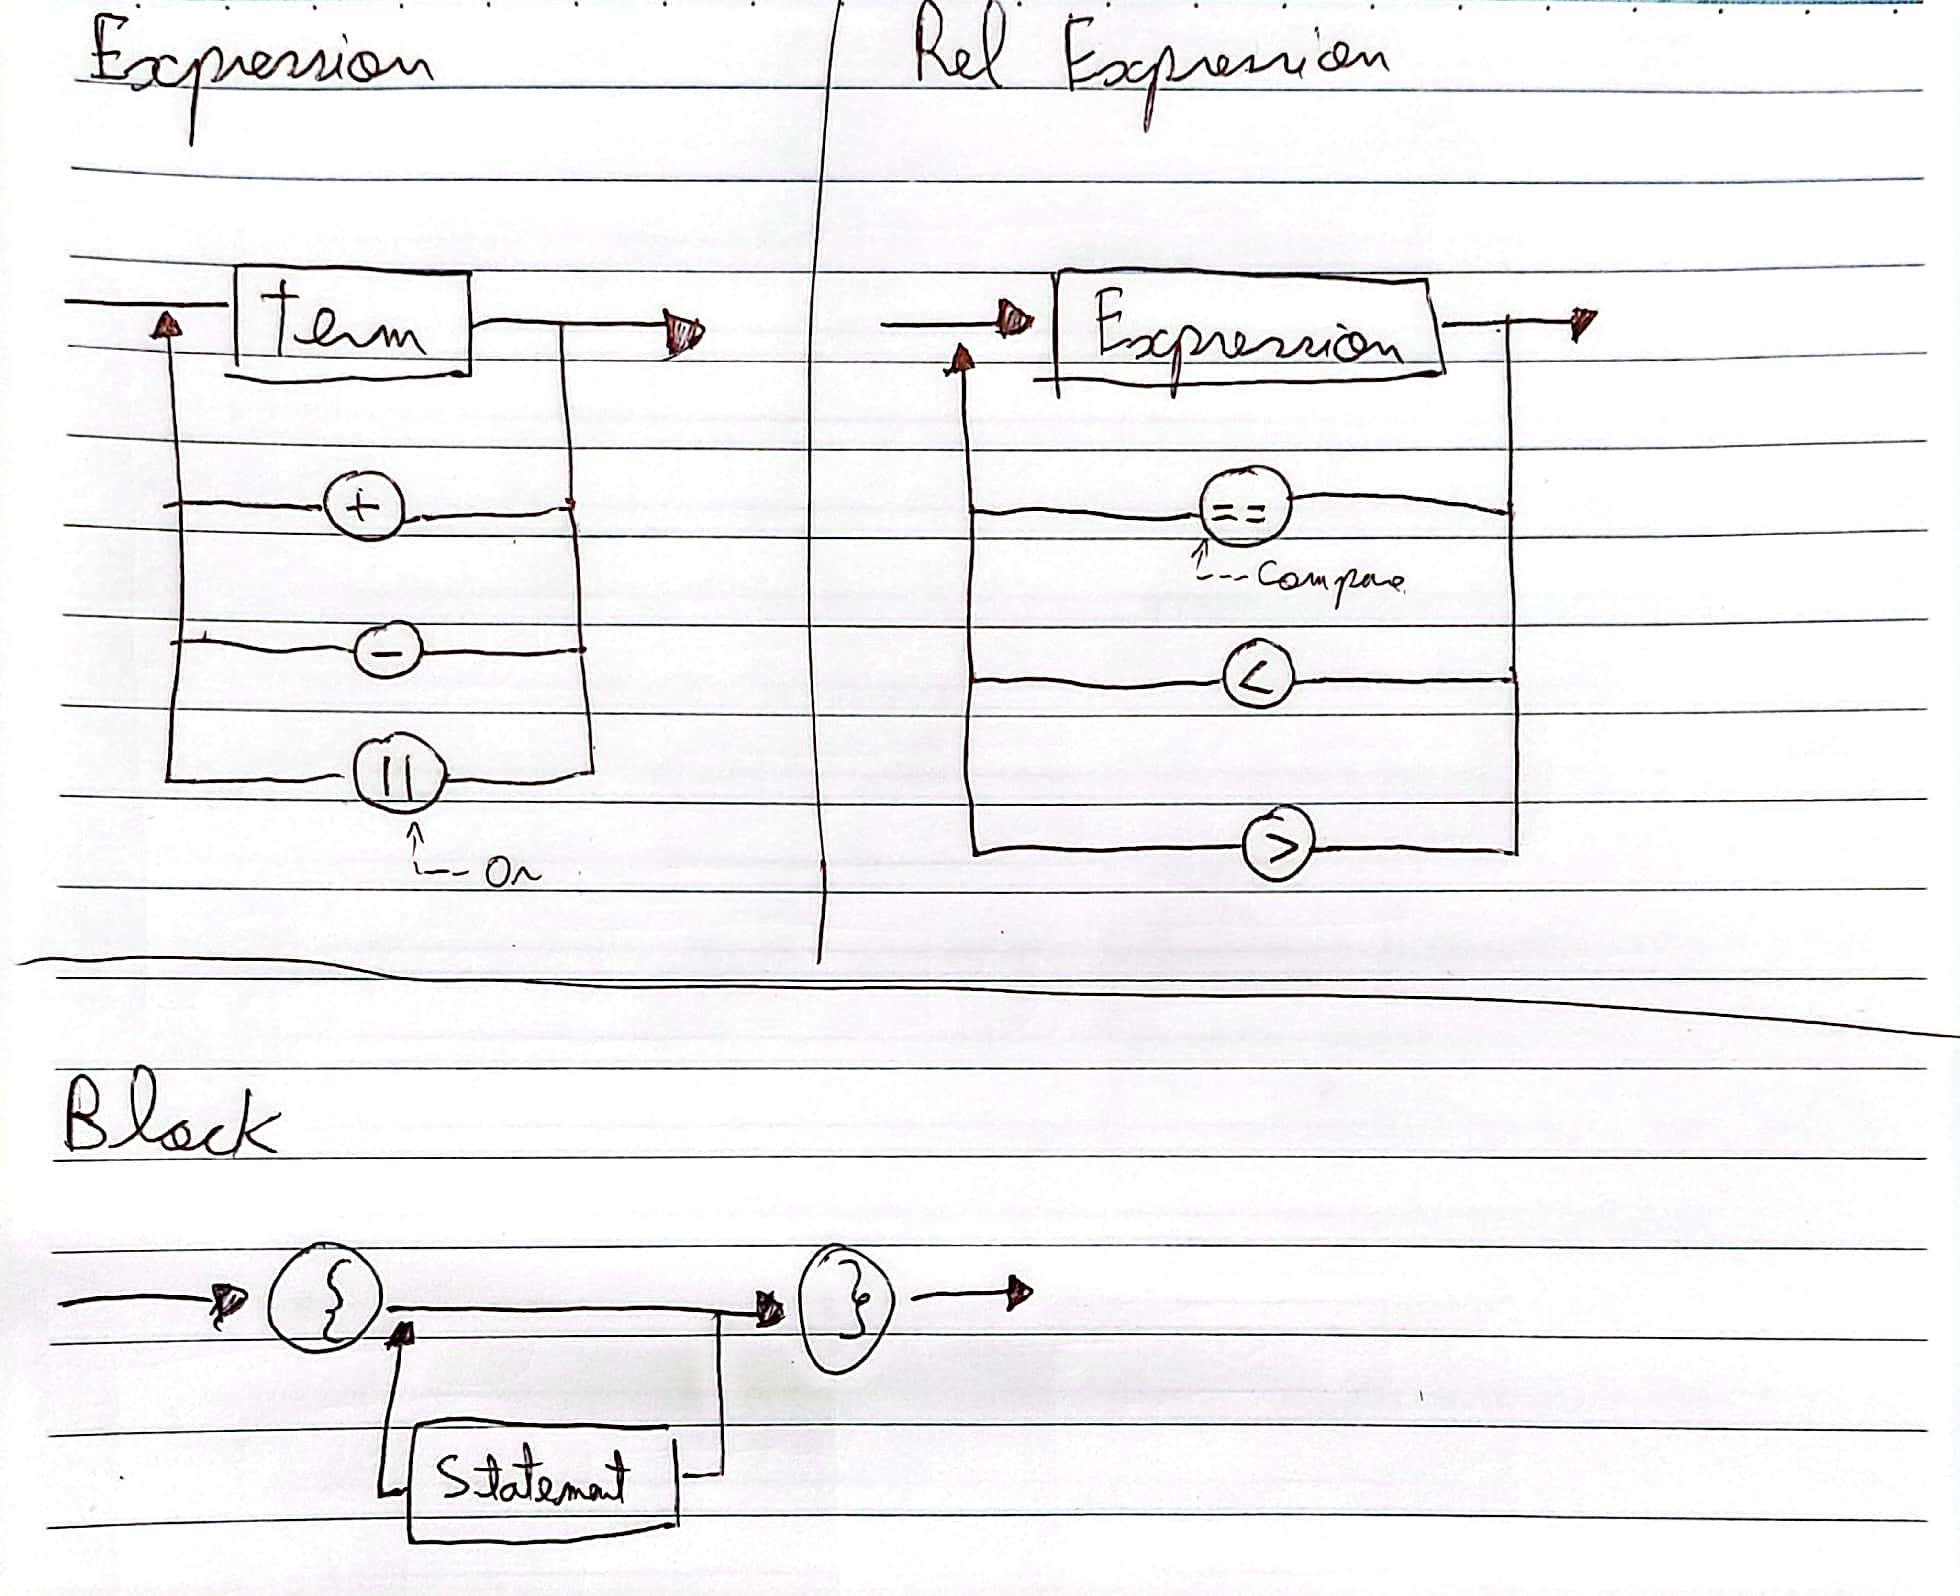 Expression
Term
+
-
||
Or
Rel Expression
Expression
==
Compare
<
>
Block
{
}
Statement